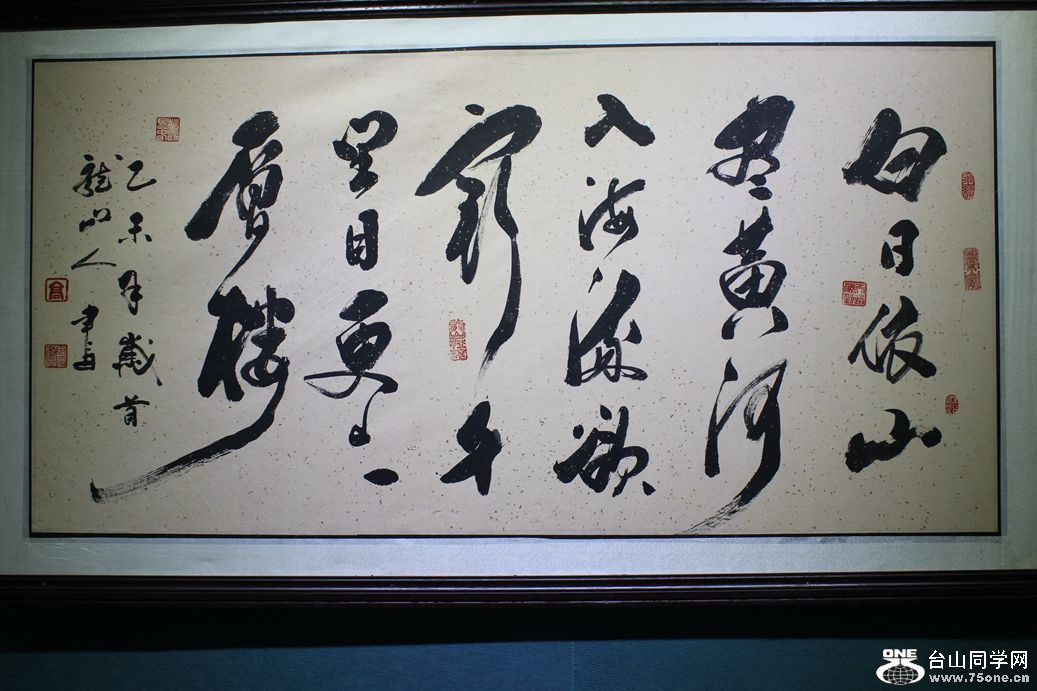 白日依山
盡黄河
入海流欲
窮千
里目更上一
層樓
乙未年歲首
龍山人書
ONE
台山同学网
www.75one.cn